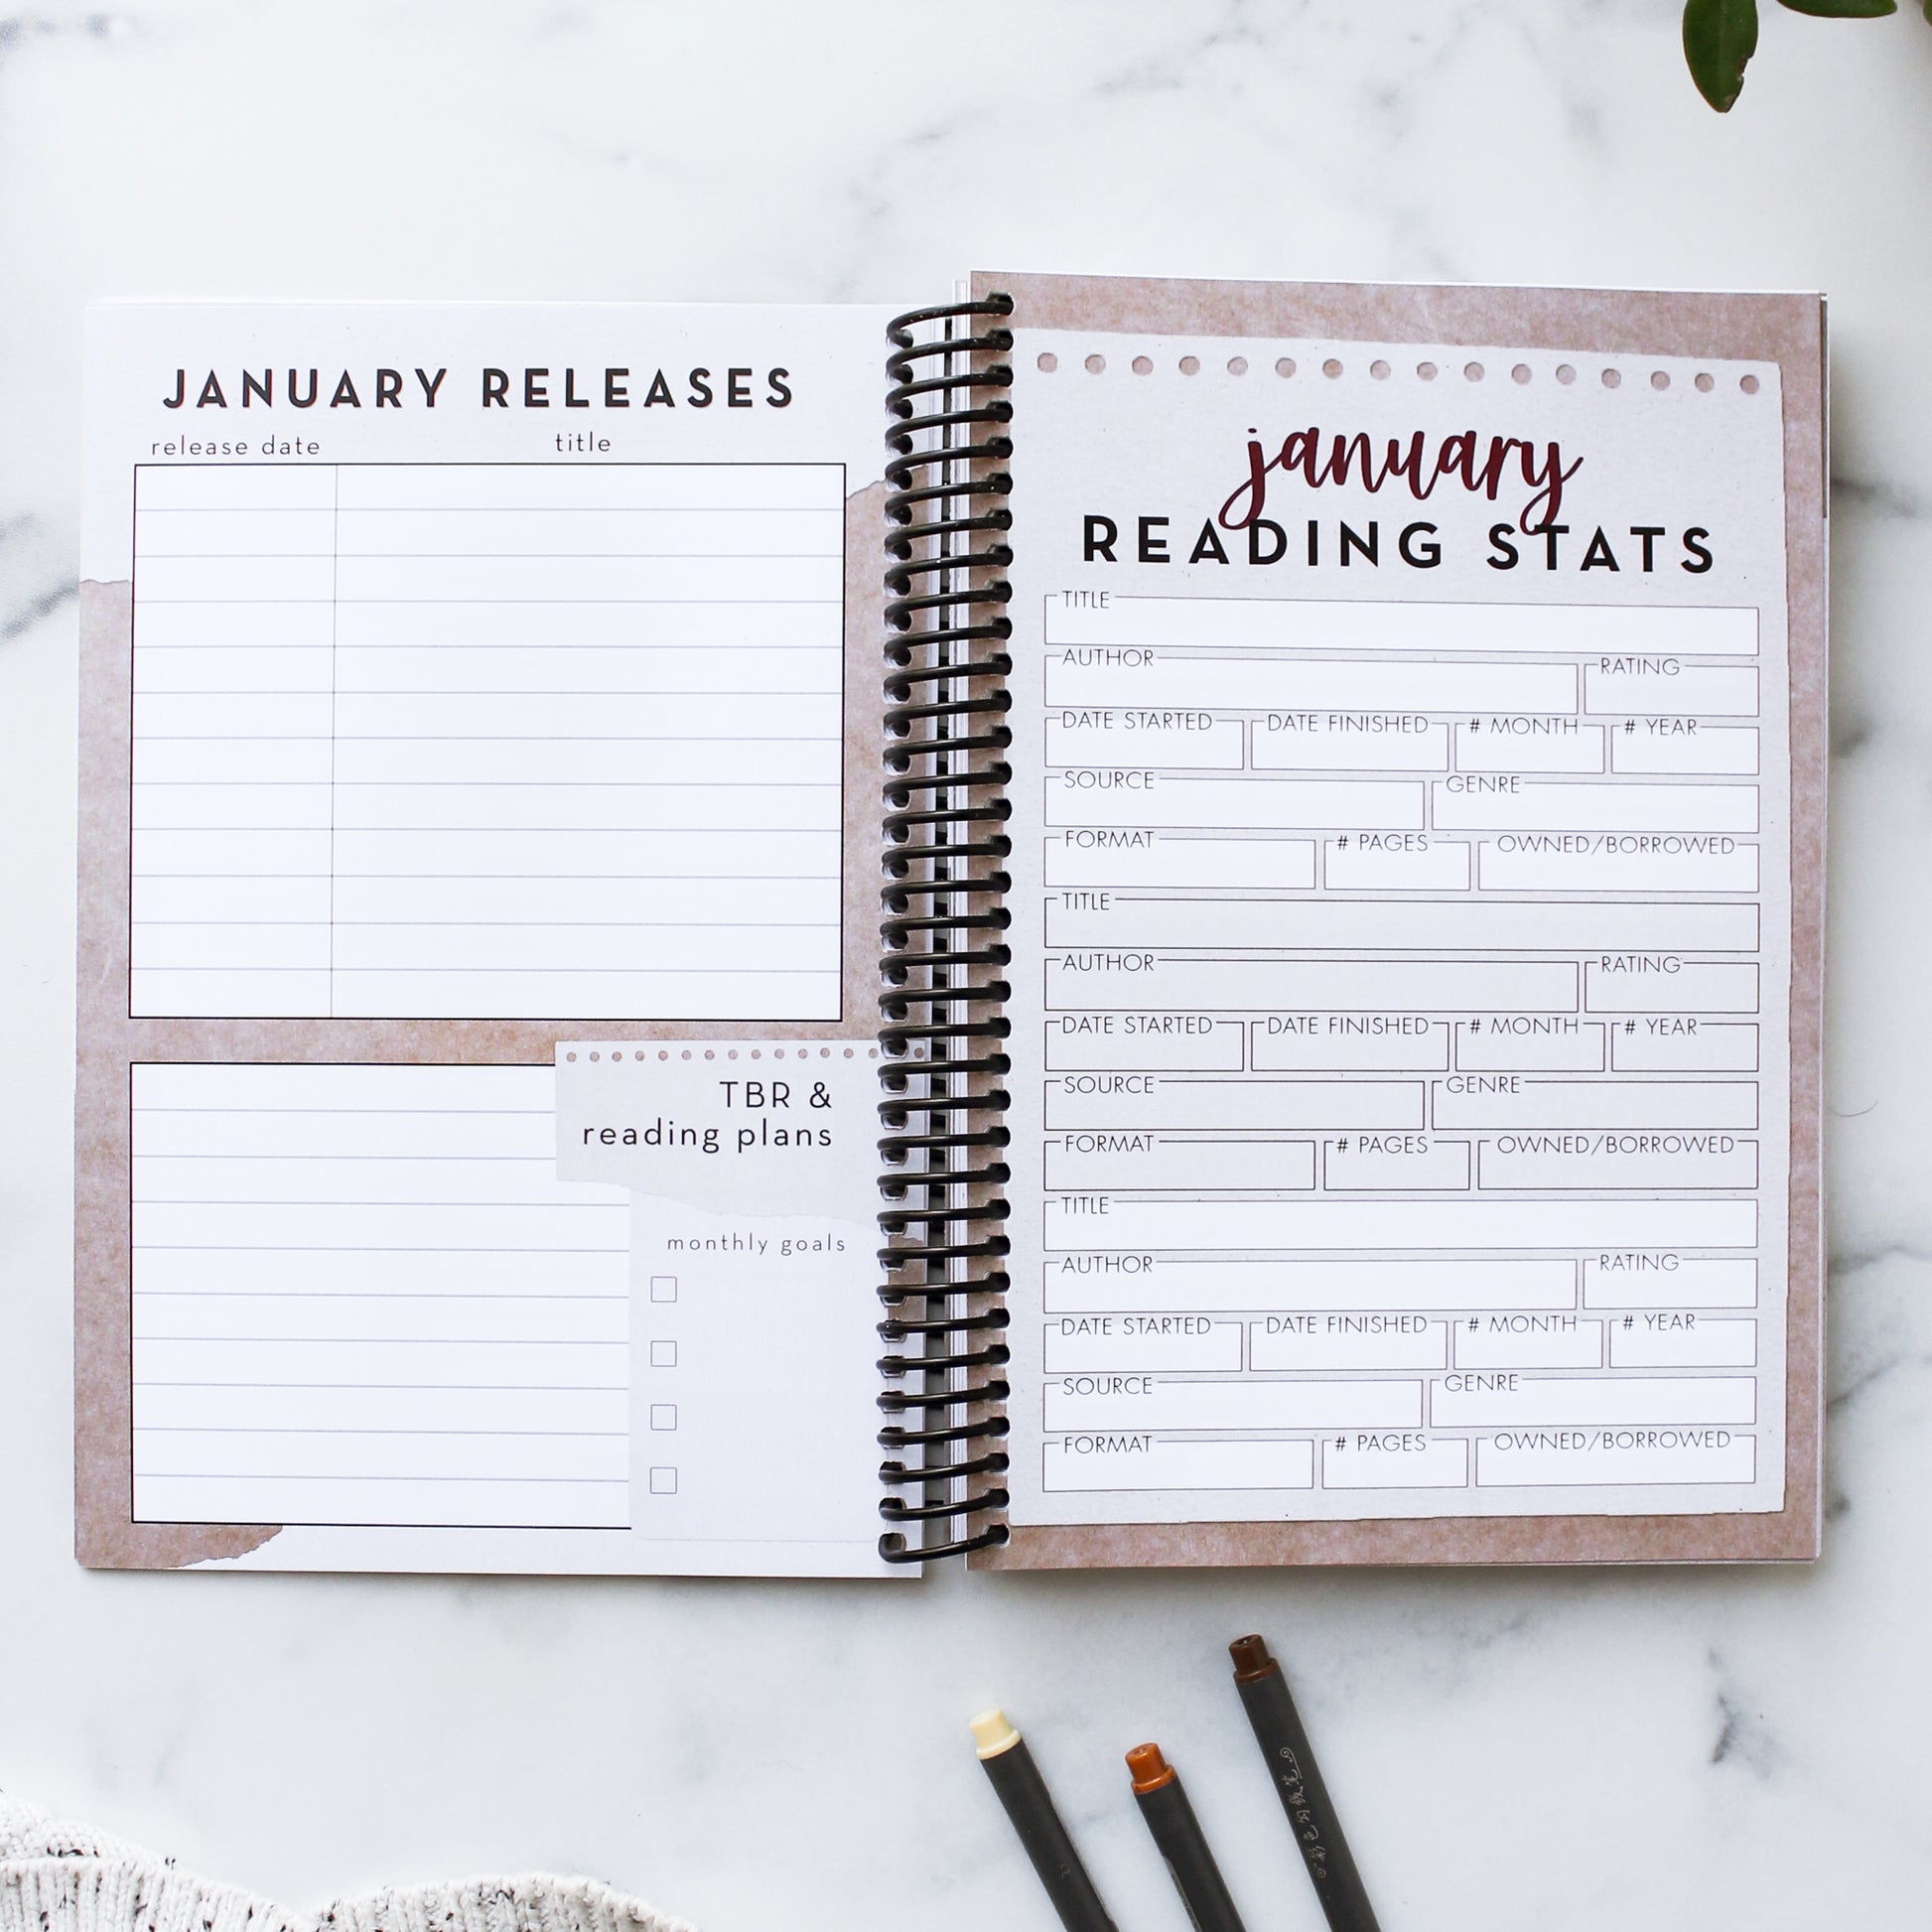 JANUARY RELEASES
release date title
TBR &
reading plans
monthly goals
january
READING STATS
TITLE
AUTHOR RATING
DATE STARTED DATE FINISHED # MONTH # YEAR
SOURCE GENRE
FORMAT # PAGES OWNED/BORROWED
TITLE
AUTHOR RATING
DATE STARTED DATE FINISHED # MONTH # YEAR
SOURCE GENRE
FORMAT # PAGES OWNED/BORROWED
TITLE
AUTHOR RATING
DATE STARTED DATE FINISHED # MONTH # YEAR
SOURCE GENRE
FORMAT # PAGES OWNED/BORROWED
彩色勾线笔